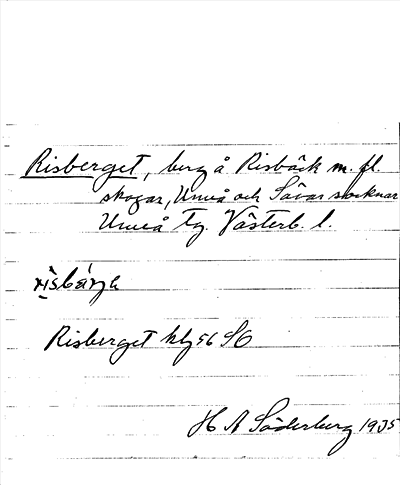 Risberget, berg å Risbäck m. fl.
skogar, Umeå och Sävar socknar
Umeå tg. Västerb. l.
Risberget kbl 56 SO
H A Söderberg 1935